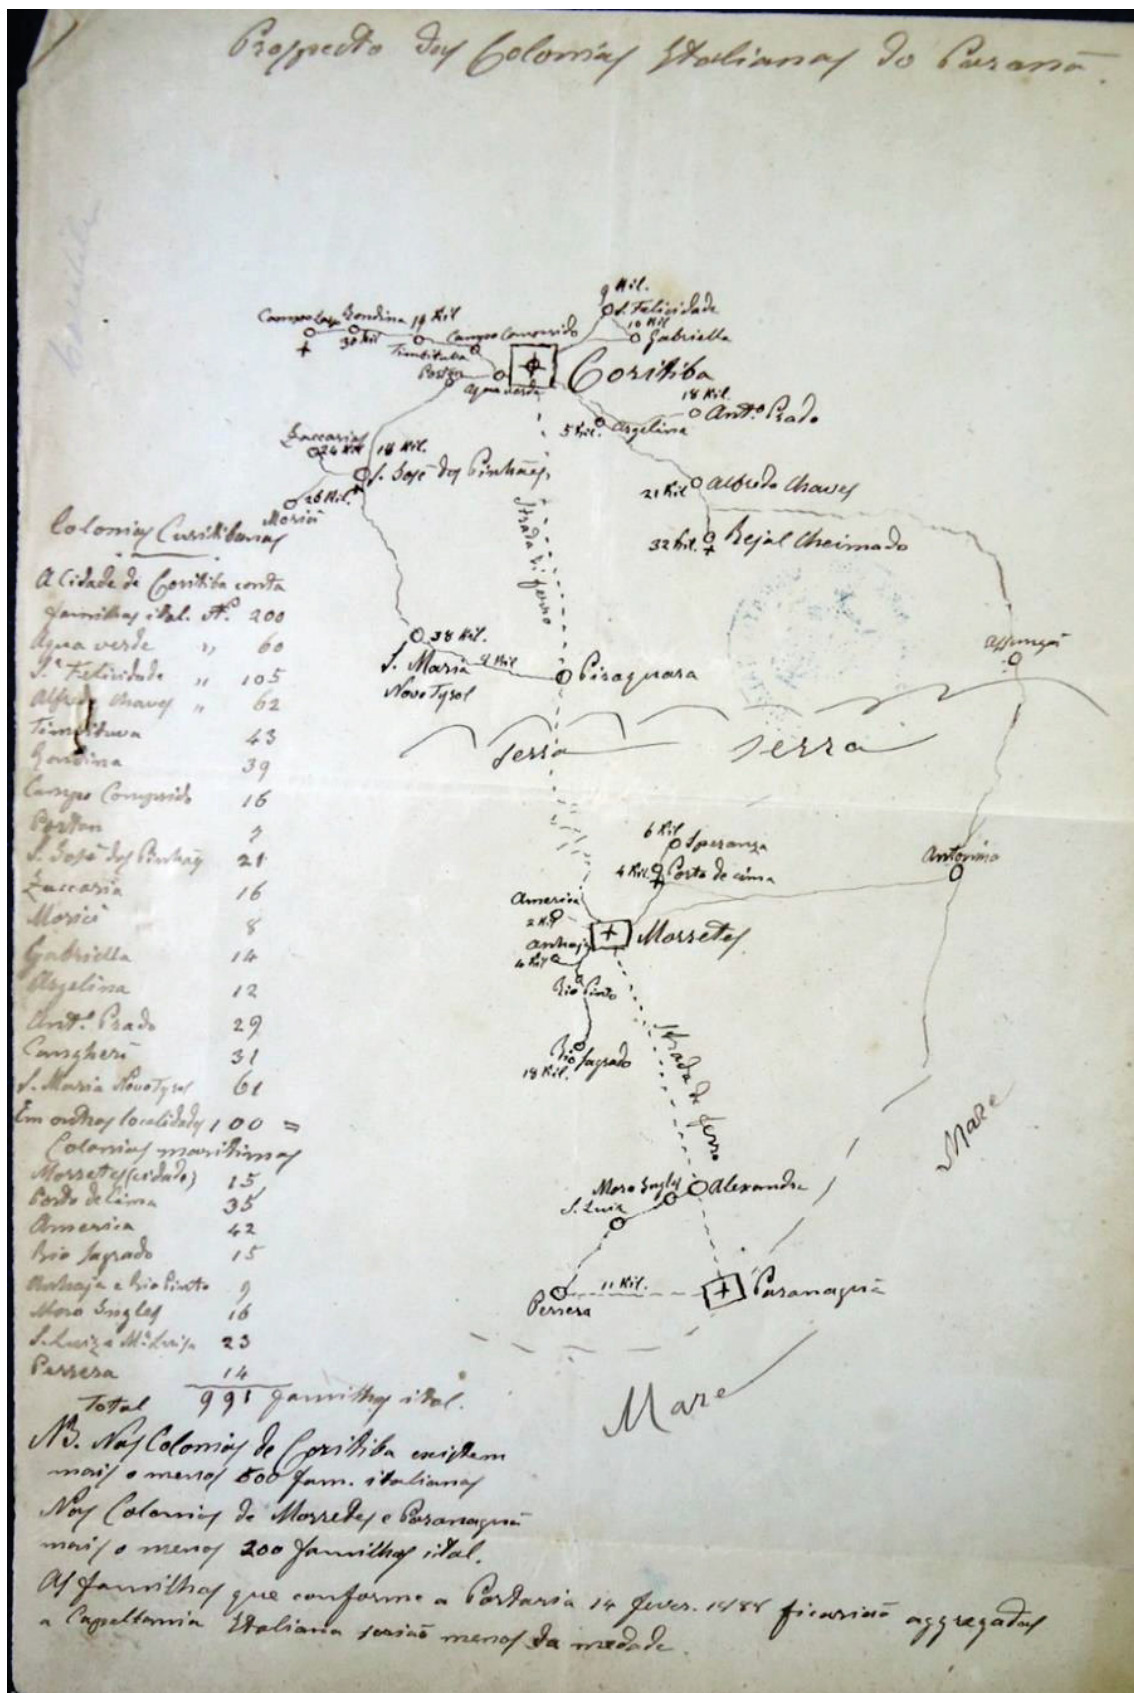 Prospecto das Colonias Italianas do Paraná.
9 Kil.
S. Felicidade
10 Kil
Gabriella
Campo Largo
Rondina
30 Kil
19 Kil
Timbituba
Campo Comprido
Portão
Agua verde
Coritiba
18 Kil.
Antº. Prado
5 Kil.
Argelina
Zaccarias
24 Kil
18 Kil.
S. José dos Pinhães
26 Kil.
Morici
21 Kil
Alfredo Chaves
32 Kil.
Bejal Cheimado
Strada di ferro
38 Kil.
S. Maria
Novo Tyrol
9 Kil
Piraquara
Assungui
Serra
Serra
6 Kil
Speranza
4 Kil.
Porto de cima
Antonina
America
2 Kil
Anhaja
4 Kil
Morretes
Rio Pinto
Rio Sagrado
18 Kil.
Strada de ferro
Mare
Moro Ingles
Alexandra
S. Luiz
11 Kil.
Perrera
Paranaguá
Mare
Colonias Curitibanas
A Cidade de Coritiba conta
familhas ital. Nº. 200
Agua verde " 60
Sª Felicidade " 105
Alfredo Chaves " 62
Timbituva 43
Rondina 39
Campo Comprido 16
Porton
S. José dos Pinhaes 21
Zaccaria 16
Morici 8
Gabriella 14
Argelina 12
Antº. Prado 29
Cangheri 31
S. Maria Novo Tyrol 61
Em outras localidades 100 =
Colonias maritimas
Morretes (cidade) 15
Porto de Cima 35
America 42
Rio Sagrado 15
Anhaja e Rio Pinto 9
Moro Ingles 16
S. Luiz e Mª Luisa 23
Perrera 14
Total 991 familhas ital.
NB. Nas Colonias de Coritiba existem
mais o menos 800 fam. italianas
Nas Colonias de Morretes e Paranaguá
mais o menos 200 familhas ital.
As familhas que conforme a Portaria 14 fever. 1888 ficariaõ aggregadas
a Capellania Italiana seriaõ menos da medade.